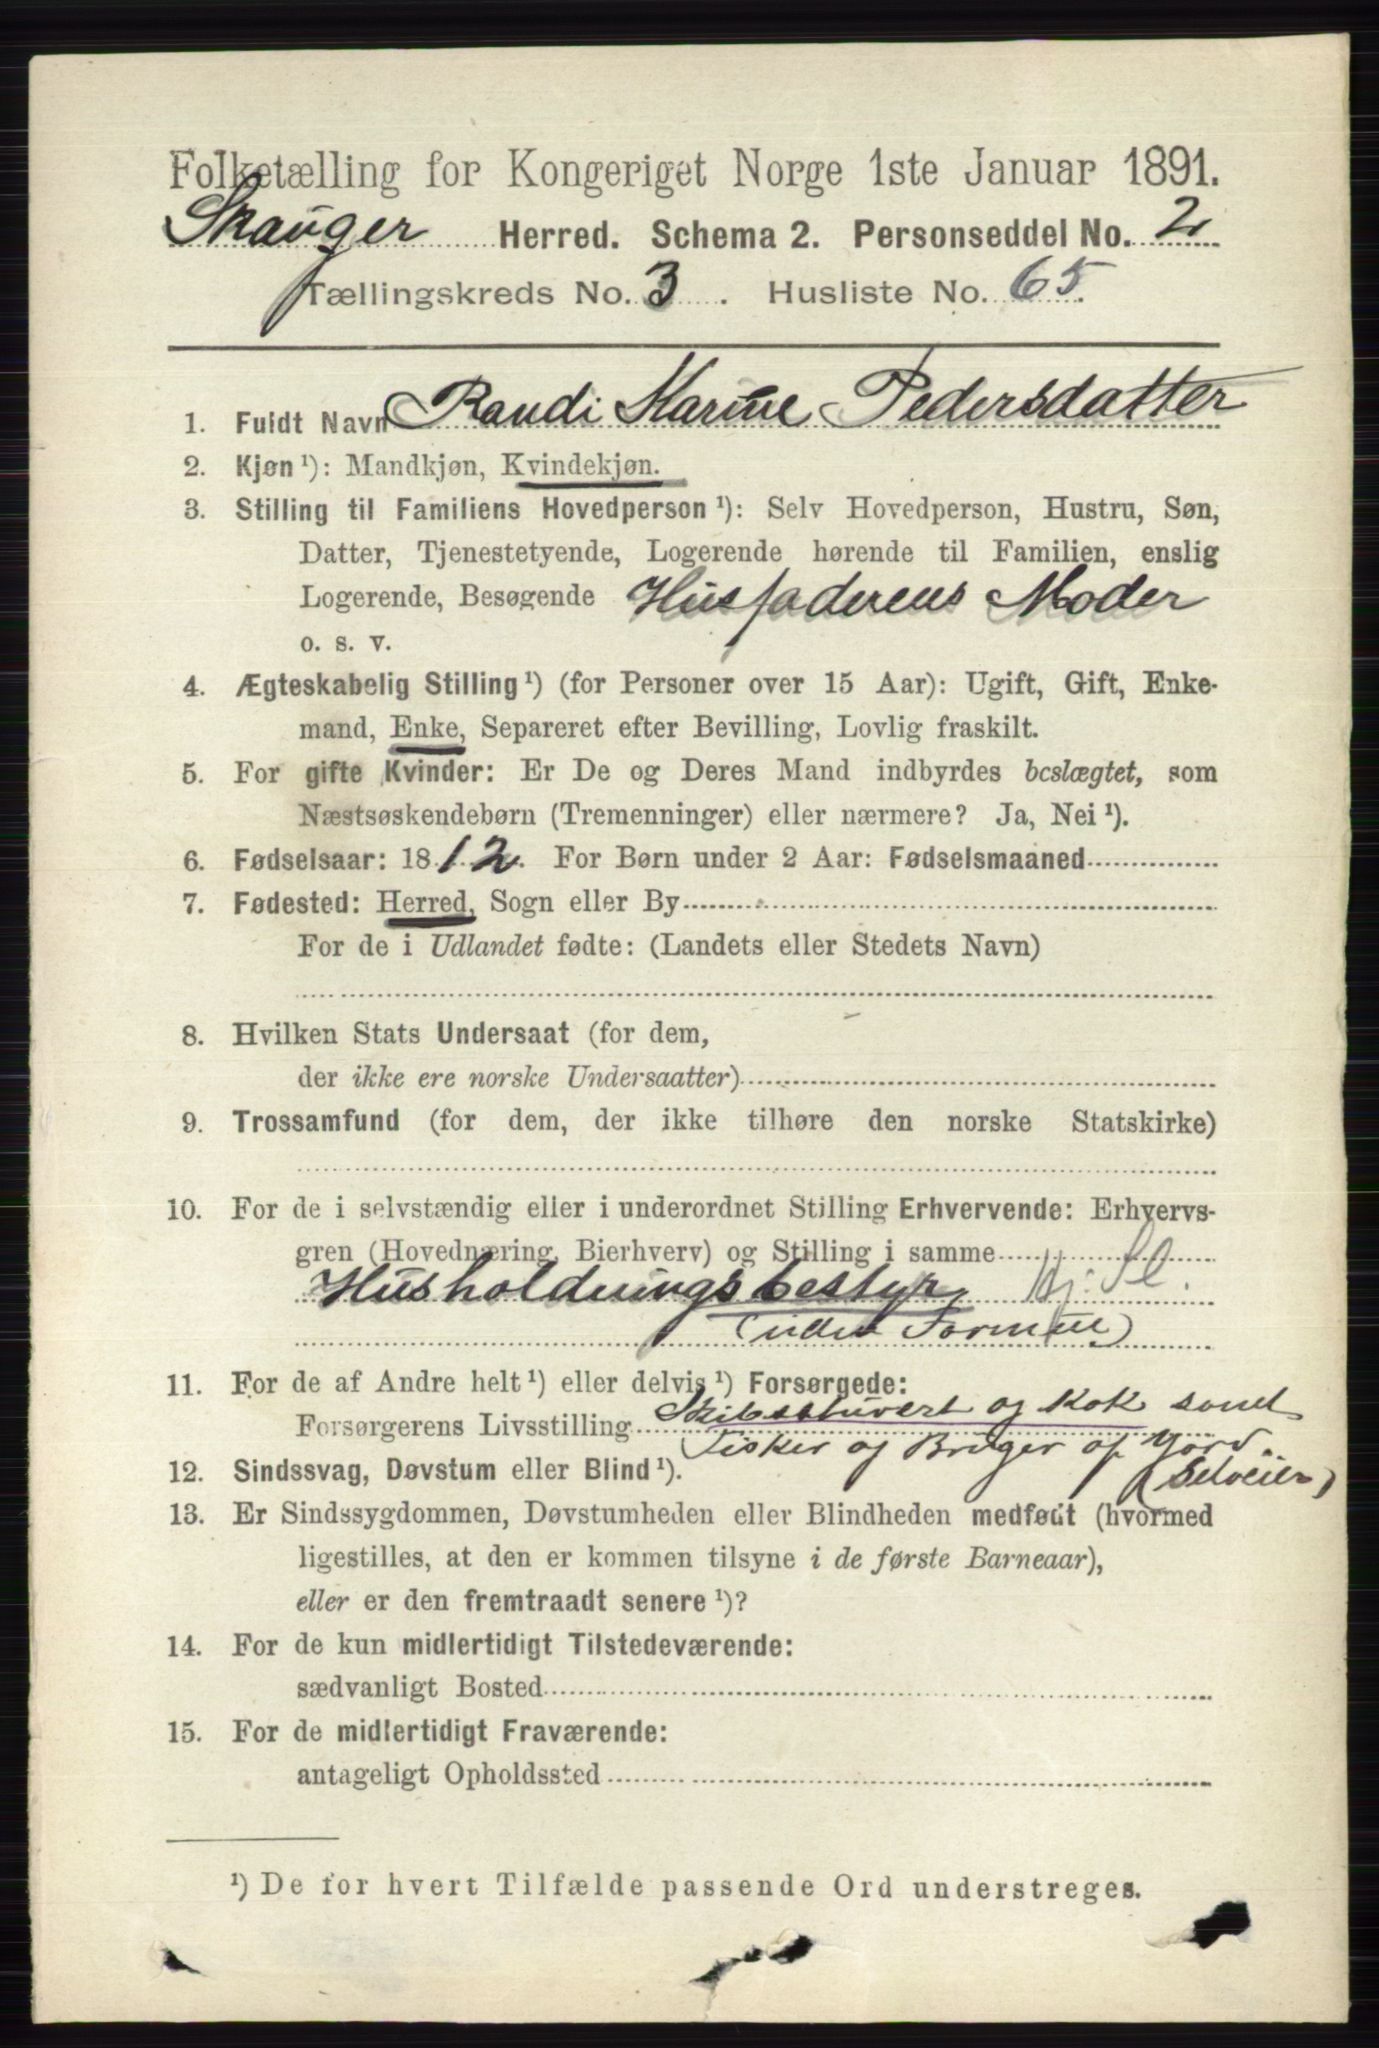 Folketælling for Kongeriget Norge 1ste Januar 1891.
Skauger Herred. Schema 2. Personseddel No. 2
Tællingskreds No. 3. Husliste No. 65.
1. Fuldt Navn Randi Marine Pedersdatter
2. Kjøn ¹): Mandkjøn, Kvindekjøn.
3. Stilling til Familiens Hovedperson ¹): Selv Hovedperson, Hustru, Søn,
Datter, Tjenestetyende, Logerende hørende til Familien, enslig
Logerende, Besøgende Husfaderens Moder
o. s. v.
4. Ægteskabelig Stilling ¹) (for Personer over 15 Aar): Ugift, Gift, Enke-
mand, Enke, Separeret efter Bevilling, Lovlig fraskilt.
5. For gifte Kvinder: Er De og Deres Mand indbyrdes beslægtet, som
Næstsøskendebørn (Tremenninger) eller nærmere? Ja, Nei ¹).
6. Fødselsaar: 1812. For Børn under 2 Aar: Fødselsmaaned
7. Fødested: Herred, Sogn eller By
For de i Udlandet fødte: (Landets eller Stedets Navn)
8. Hvilken Stats Undersaat (for dem,
der ikke ere norske Undersaatter)
9. Trossamfund (for dem, der ikke tilhøre den norske Statskirke)
10. For de i selvstændig eller i underordnet Stilling Erhvervende: Erhvervs-
gren (Hovednæring, Bierhverv) og Stilling i samme
Husholdningsbestyr.
(uden Formue)
11. For de af Andre helt ¹) eller delvis ¹) Forsørgede:
Forsørgerens Livsstilling Skibsstuvert og Kok samt
Fisker og Bruger af Jord.
(Selveier)
12. Sindssvag, Døvstum eller Blind ¹).
13. Er Sindssygdommen, Døvstumheden eller Blindheden medfødt (hvormed
ligestilles, at den er kommen tilsyne i de første Barneaar),
eller er den fremtraadt senere ¹)?
14. For de kun midlertidigt Tilstedeværende:
sædvanligt Bosted
15. For de midlertidigt Fraværende:
antageligt Opholdssted
¹) De for hvert Tilfælde passende Ord understreges.